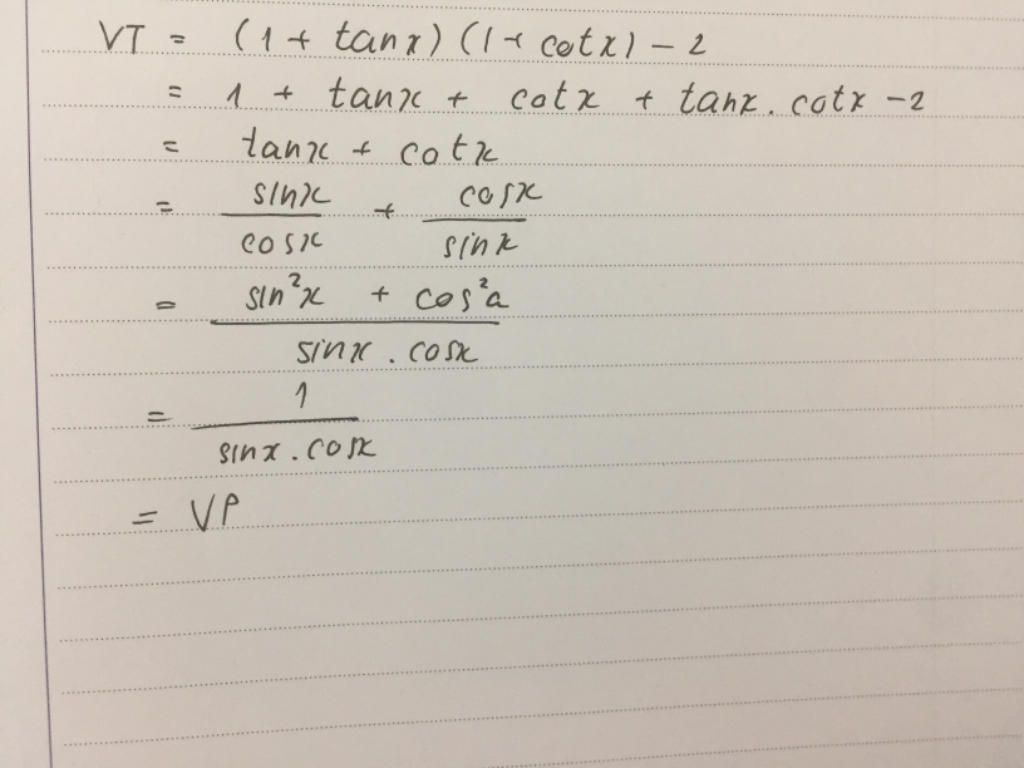 VT = (1 + tanx) (1 + cotx) - 2
= 1 + tanx + cotx + tanx . cotx - 2
= tanx + cotx
= sinx/cosx + cosx/sinx
= sin²x + cos²a / sinx . cosx
= 1 / sinx . cosx
= VP